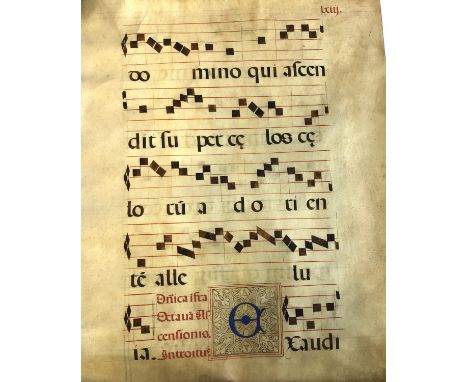 lxiij.
do mino qui ascen
dit su per cę los cę
lo rū a d o ri en
tē alle lu
Dñica ifra
Octauā As
censionis.
Introitus
ia. E Xaudi